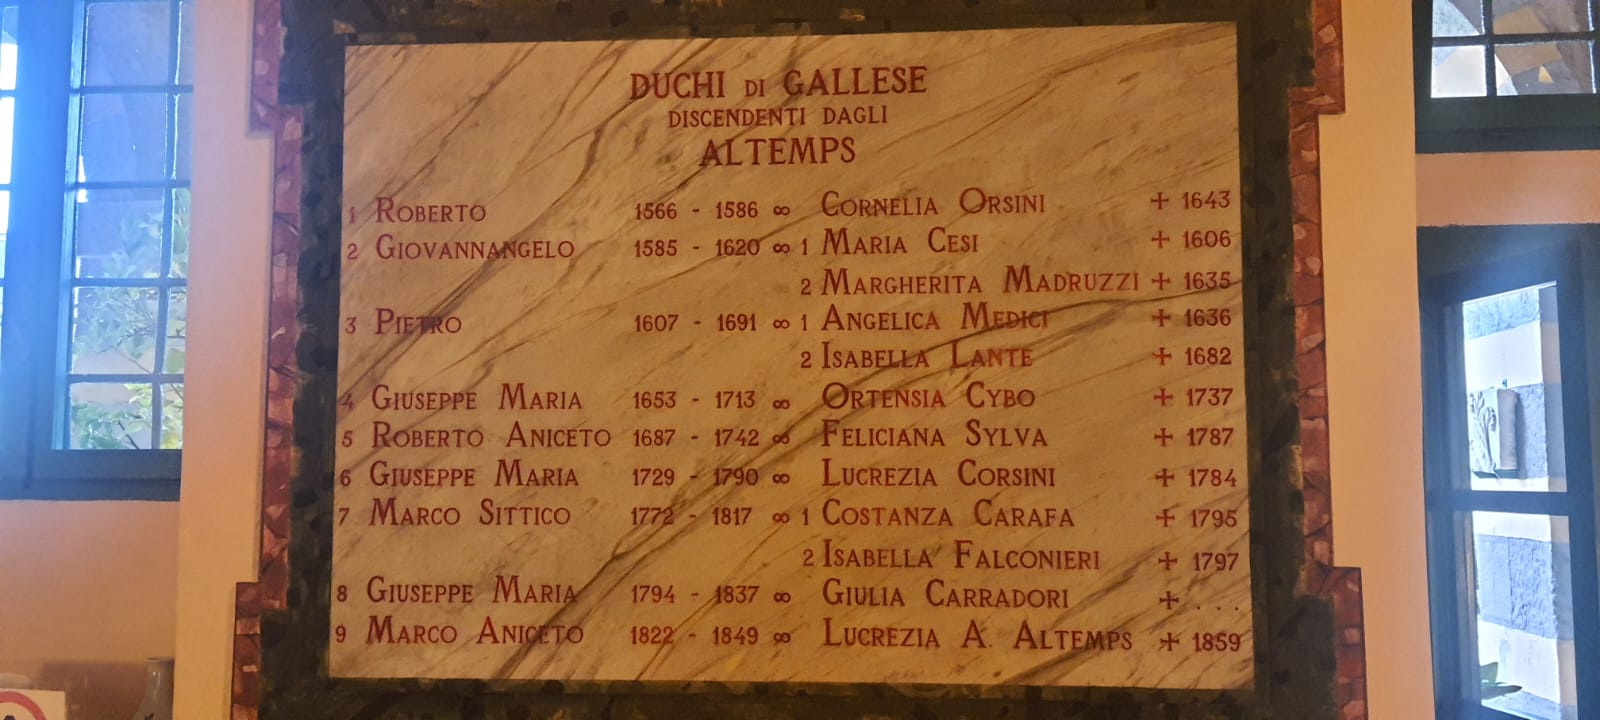 DUCHI DI GALLESE
DISCENDENTI DAGLI
ALTEMPS
1 ROBERTO 1566 - 1586 ∞ CORNELIA ORSINI + 1643
2 GIOVANNANGELO 1585 - 1620 ∞ 1 MARIA CESI + 1606
2 MARGHERITA MADRUZZI + 1635
3 PIETRO 1607 - 1691 ∞ 1 ANGELICA MEDICI + 1636
2 ISABELLA LANTE + 1682
4 GIUSEPPE MARIA 1653 - 1713 ∞ ORTENSIA CYBO + 1737
5 ROBERTO ANICETO 1687 - 1742 ∞ FELICIANA SYLVA + 1787
6 GIUSEPPE MARIA 1729 - 1790 ∞ LUCREZIA CORSINI + 1784
7 MARCO SITTICO 1772 - 1817 ∞ 1 COSTANZA CARAFA + 1795
2 ISABELLA FALCONIERI + 1797
8 GIUSEPPE MARIA 1794 - 1837 ∞ GIULIA CARRADORI + . . .
9 MARCO ANICETO 1822 - 1849 ∞ LUCREZIA A. ALTEMPS + 1859